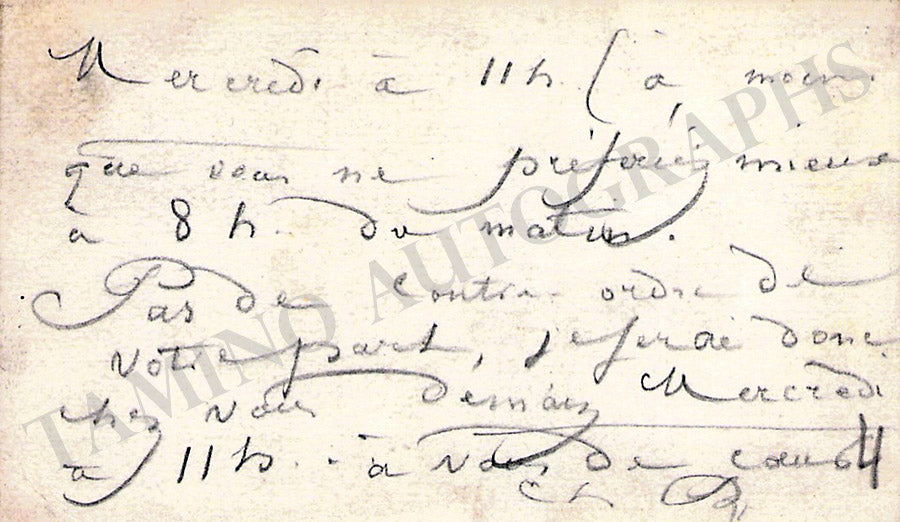 Mercredi à 11h (à moins
que vous ne préfériez mieux
à 8 h. du matin.
Pas de contre ordre de
votre part, je serai donc
chez vous demain Mercredi
à 11h. - à vous de cœur 4
Ch B
TAMINO AUTOGRAPHS